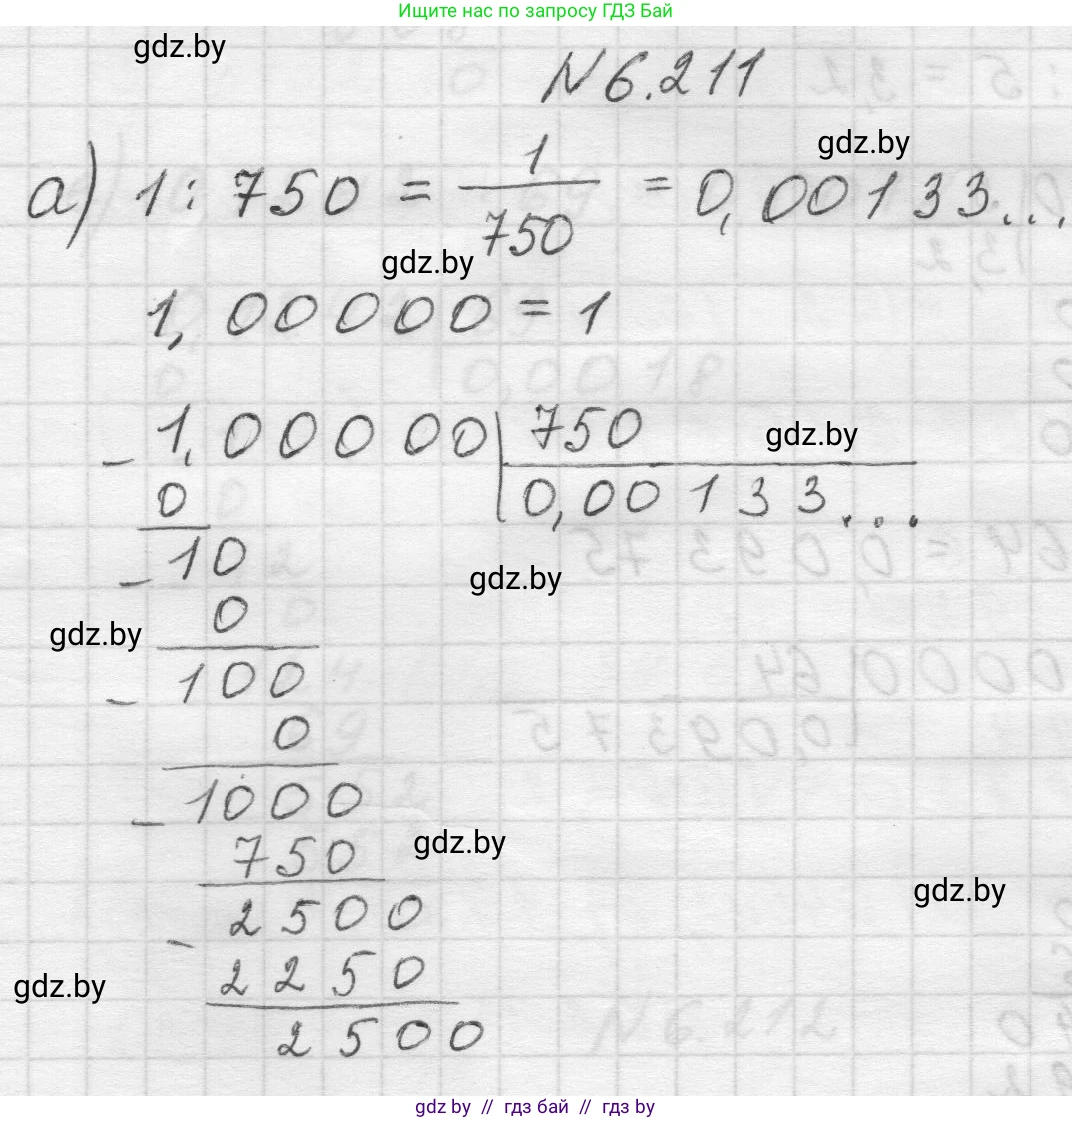 Ищите нас по запросу ГДЗ Бай
gdz.by
N 6.211
gdz.by
а) 1 : 750 = 1/750 = 0,00133...,
gdz.by
1,00000 = 1
- 1,00000 | 750
gdz.by
0 | 0,00133...
- 10
gdz.by
0
gdz.by
- 100
0
- 1000
750
gdz.by
gdz.by
- 2500
2250
gdz.by
2500
gdz by // гдз бай // гдз by